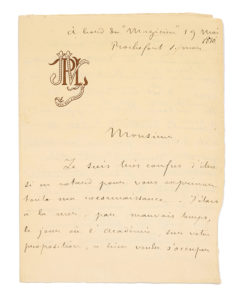 à bord du "Magicien" 19 mai
Rochefort s. mer
1890
JPL
Monsieur,
Je suis très confus d'être
si en retard pour vous exprimer
toute ma reconnaissance... J'étais
à la mer, par mauvais temps,
le jour où l'Académie, sur votre
proposition, a bien voulu s'occuper